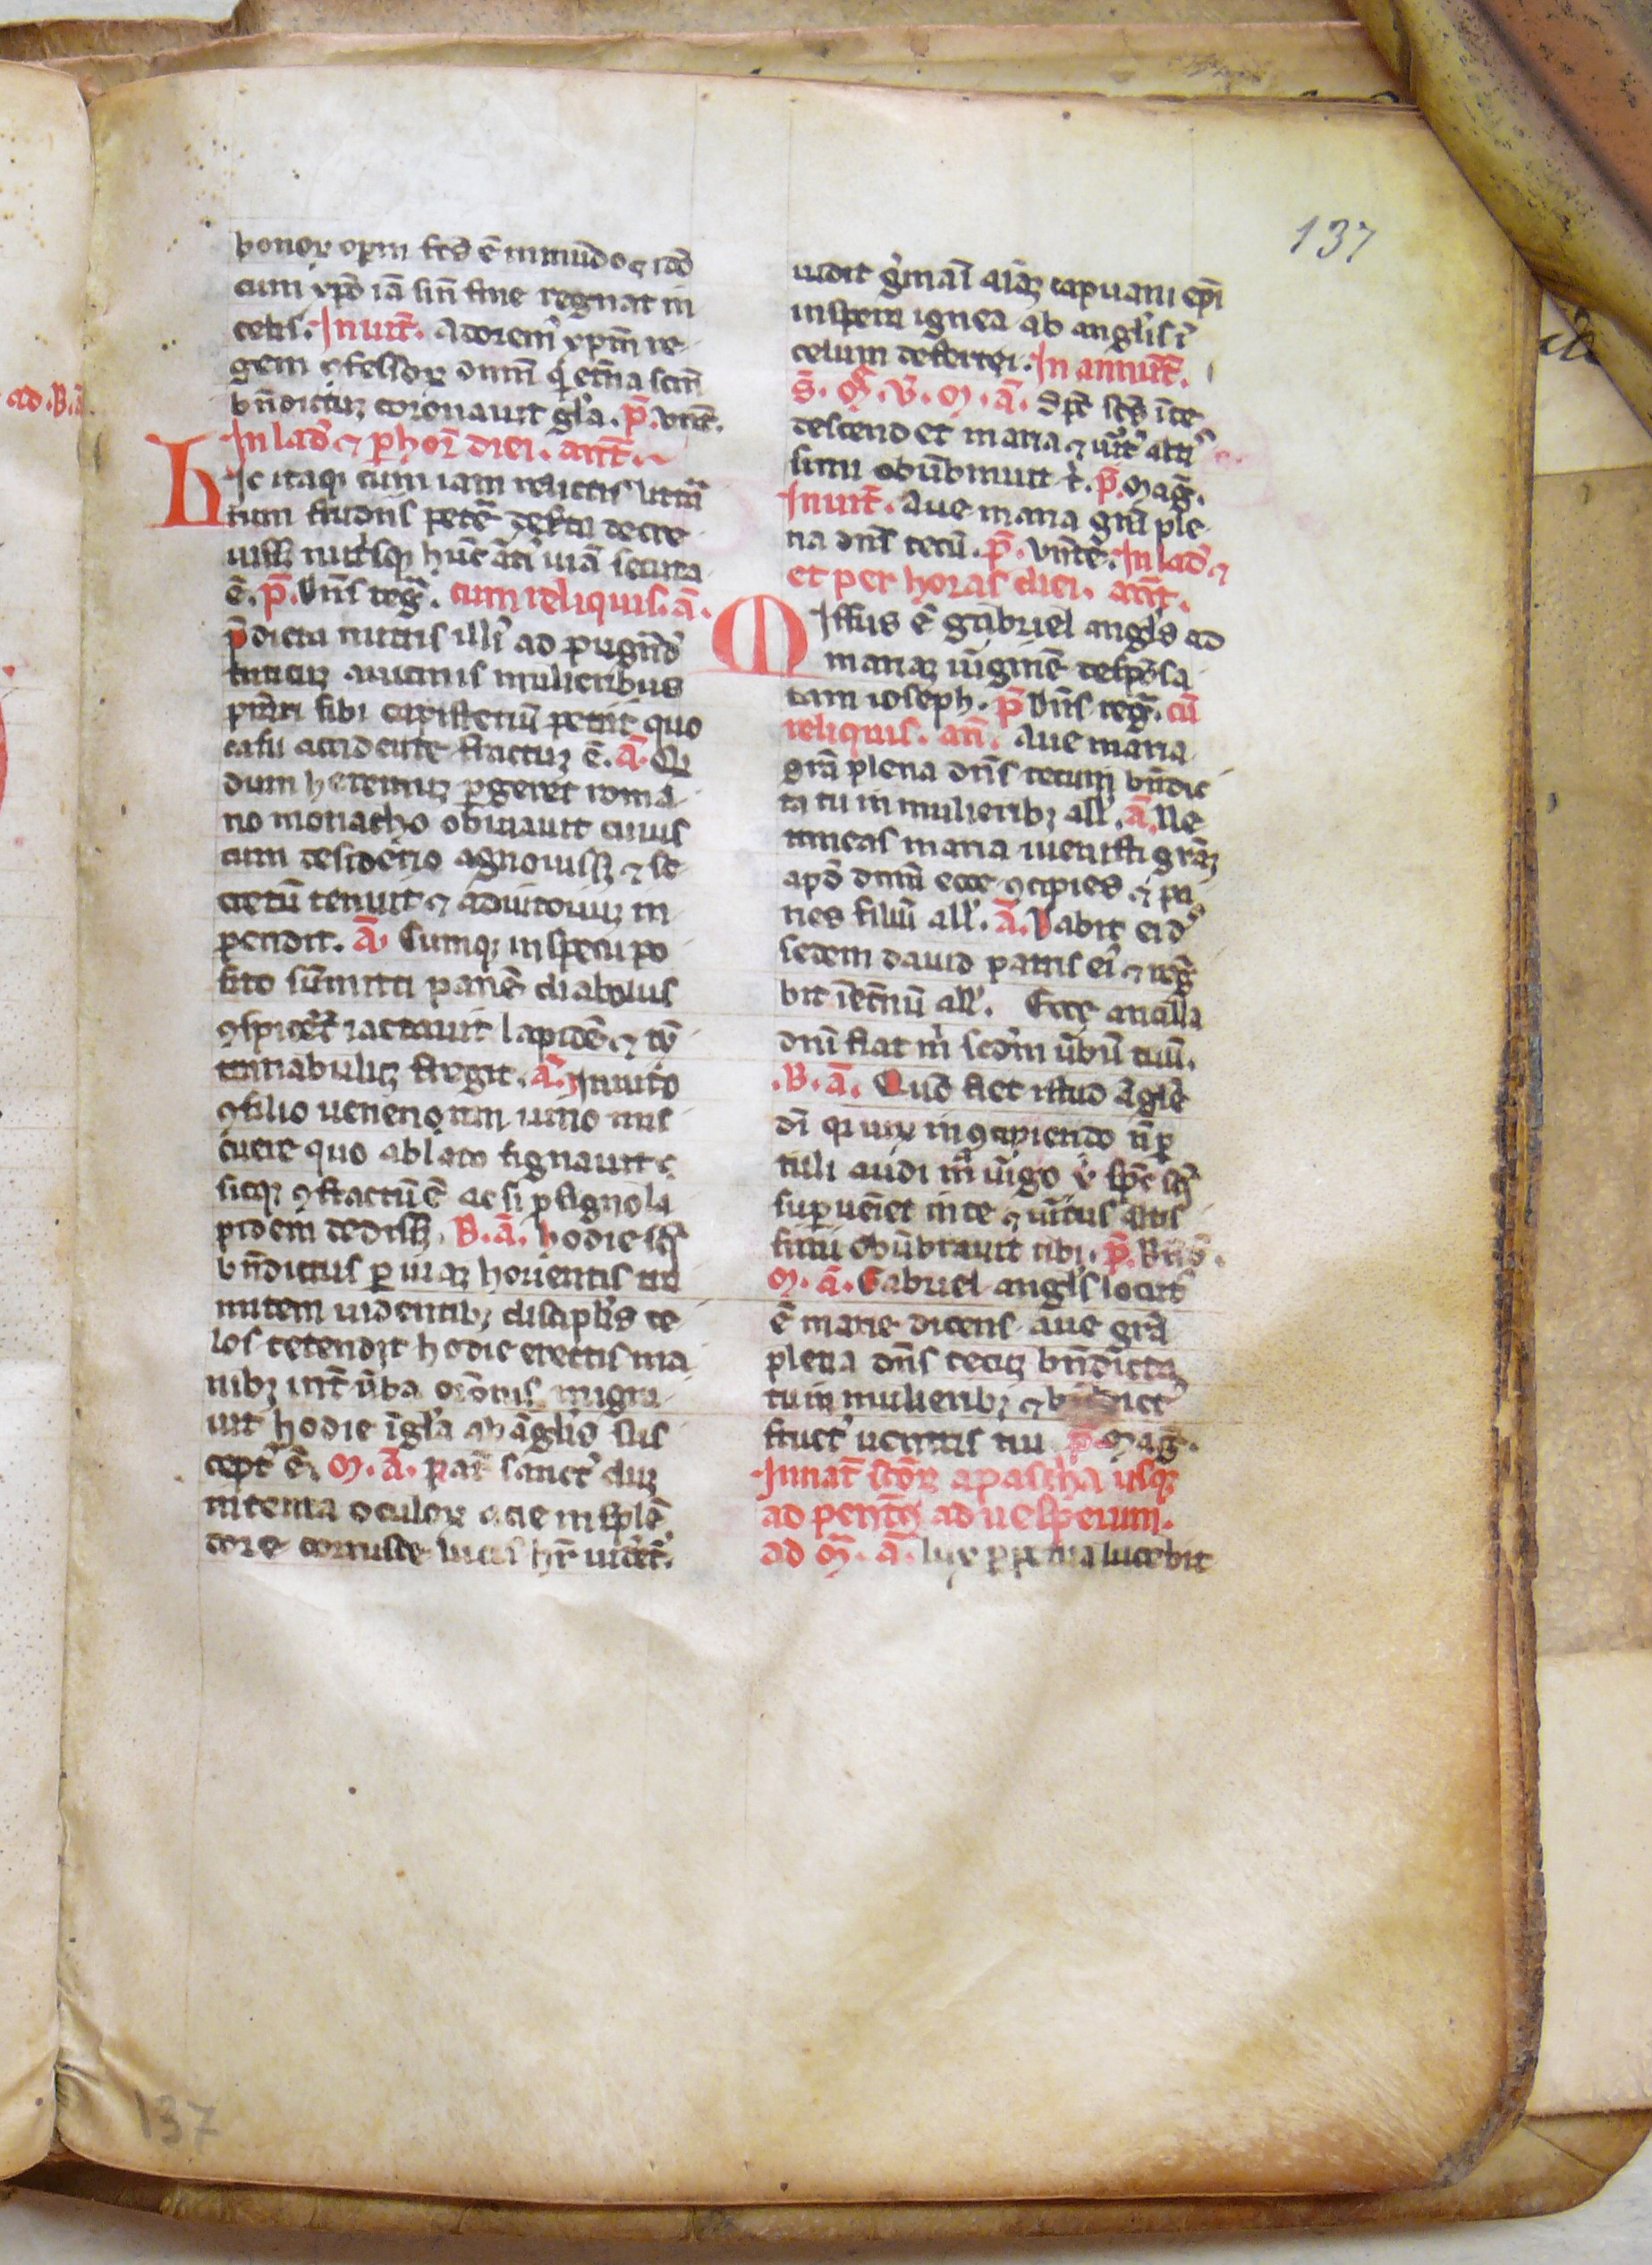 137
ad. B. a
honor opm fcs ē in mundo ⁊ ido
cum xpo iā sin fine regnat in
celis. Inuit. adorem᾽ xpm re
gem ꝯfessor dnm q̇ etna scm
bn̄dictuꝫ coronauit gl̄a. p̄. vēīt.
In laꝺ ⁊ p hoꝛ diei. ant.
Hic itaqꝫ cum iam relictis litt̄a
rum studiis petē deserta decre
uissꝫ nut᾽sqꝫ hūc
ē. p̄. Dn̄s reg̃. cum reliquis. ā.
p̄dicta nutris illi᾽
mulieribus
p̄stari sibi capisteriū petiit quo
casu accidente fractuꝫ ē. ā. Qi
dum heremuꝫ ꝑgeret roma
no monacho obiuauit cuius
cum desiderio agnouissꝫ ⁊ se
cretū tenuit ⁊ adiutoriuꝫ in
pendit. ā. Cumqꝫ in specu po
sito sūmitti panē diabolus
ꝯspicēt iactauit lapidē ⁊ tȳ
tinabuluꝫ fregit. ā. Inuito
ꝯsilio uenenum uino mis
cuere quo ablato signauit ⁊
sicqꝫ ꝯfractū ē ac si p signo la
pidem dedissꝫ. B. ā. hodie sc̄s
bn̄dictus p uiaꝫ horientis
mitem uidentibꝫ discipl̄is ce
los tetendit hodie erectis ma
nibꝫ int̄ ūba or̄onis migra
uit hodie ī gl̄a ab āgl̄is sus
cept᾽ ē. M. ā. pat̄ sanct᾽ duꝫ
intenta oculoꝝ acie in splē
dore corusce lucis hr̄ uidet᾽.
uidit g̊mani aīaꝫ capuani ep̄i
in spera ignea ab angl̄is ī
celum deferri. In annūt.
Sp̄c sc̄s ī te
descendet maria ⁊ uīt᾽ alti
simi obūbrauit t̄. p̄. mag̃.
Inuit. Aue maria grā ple
na dn̄s tecū. p̄. Vn̄te. In laꝺ ⁊
et per horas diei. ant.
Missus ē gābriel angl̄s ad
mariaꝫ uīginē desp̄osa
tam ioseph. p̄ Dn̄s reg̃. cū
reliquis. an̄. Aue maria
grā plena dn̄s tecum bn̄dic
ta tu in mulieribꝫ all᾽. ā. Ne
timeas maria iuenisti grāꝫ
apd̄ dnm̄ ecce ꝯcipies ⁊ pa
ries filiū all᾽. ā. Dabit ei dn̄s
sedem dauid patris ei᾽ ⁊ reg̃
bit ī etnū all᾽. Ecce ancilla
dnī fiat m̄ scd̄m ūbū tuū.
B. ā. Quō fiet istud āgl̄e
dī q̄ uiꝝ in ꝯcipiendo n̄ ꝑ
tuli audi mā uīgo x̄ sp̄c sc̄s
sup ueniet in te ⁊ uīt᾽us altis
simi obūbrauit tibi. p̄. Bn̄s.
M. ā. Gabriel angl̄s locut᾽
ē marie dicens aue grā
plena dn̄s tecuꝫ bn̄dicta
tu in mulieribꝫ ⁊ bn̄dict᾽
fruct᾽ uentris tui p̄ mag̃.
In nat̄ sc̄oꝝ a pascha usqꝫ
ad pent̄ ad uesperum.
ad M̄. ā. lux perpetua lucebit
137